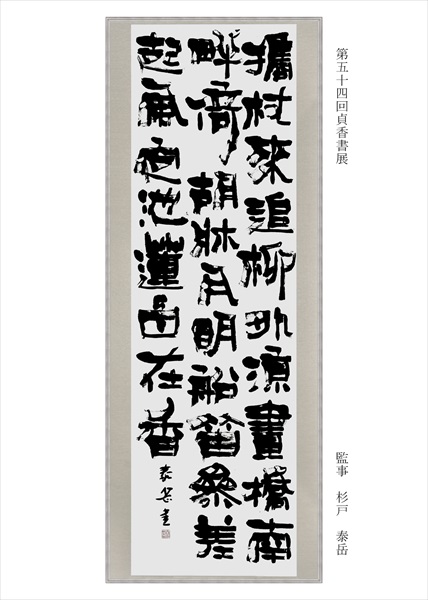 第五十四回貞香書展
監事 杉戸 泰岳
攜杖來追柳外涼畫橋南
畔倚胡牀月明船笛參差
起風定池蓮自在香
泰岳書